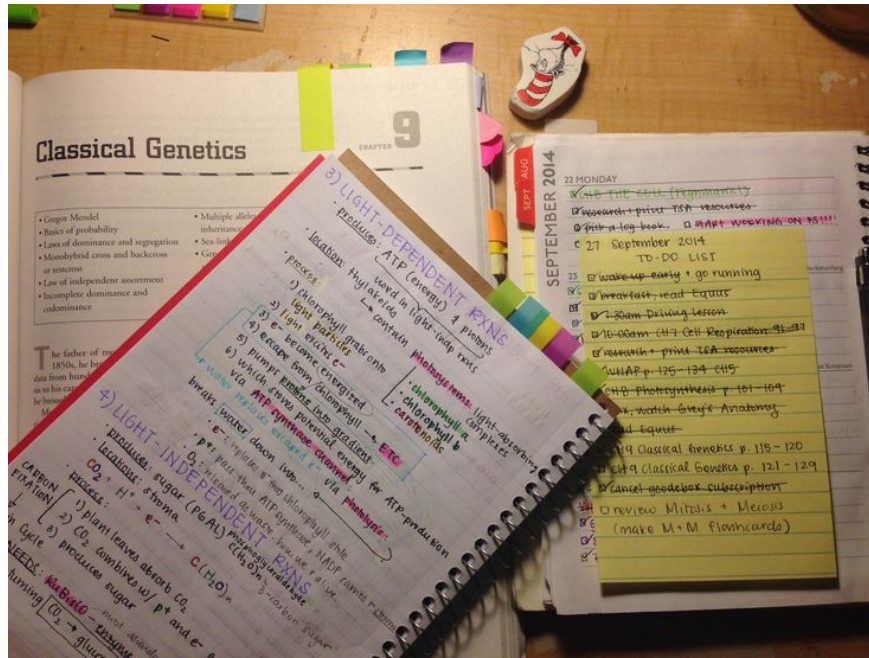 Classical Genetics
CHAPTER 9
• Gregor Mendel
• Basics of probability
• Laws of dominance and segregation
• Monohybrid cross and backcross
or testcross
• Law of independent assortment
• Incomplete dominance and
codominance
• Multiple
inheritance
• Sex-link
The father of
1850s, he
data from
3) LIGHT-DEPENDENT RXNS
• produces: ATP (energy) & protons
used in light-indp rxns
• location: thylakoids
→ contain photosystems: light-absorbing
complexes
• chlorophyll a
• chlorophyll b
• carotenoids
• process:
1) chlorophyll grabs onto
light particles
2) light excites e-
3) e- become energized
4) escape from chlorophyll → ETC
5) pumps protons into gradient
6) which stores potential energy for ATP-production
via ATP synthase channel
water replaces escaped e- via photolysis:
breaks water down into...
• e-: replaces e- from chlorophyll
• p+: pass thru ATP synthase, NADP carries
• O2: released as waste, how we r alive
4) LIGHT-INDEPENDENT RXNS
• produces: sugar (PGAL) phosphoglyceraldehyde
C(H2O)n
3-carbon sugar
• locations: stroma
CO2 + H+ + e- → C(H2O)n
• process:
CARBON
FIXATION
1) plant leaves absorb CO2
2) CO2 combines w/ p+ and e-
3) produces sugar
Cycle
NEEDS: RuBisCO - enzyme
turning CO2 →
SEPT AUG
SEPTEMBER 2014
22 MONDAY
research + print TSA resources
pick a log book. START WORKING ON
23
27 September 2014
TO-DO LIST
wake up early + go running
breakfast; read Equus
7:30am Driving lesson
10:00am CH7 Cell Respiration 91-97
research + print TSA resources
WHAP p. 125-134 CH5
CH8 Photosynthesis p. 101-109
watch Grey's Anatomy
read Equus
CH9 Classical Genetics p. 115-120
CH9 Classical Genetics p. 121-129
cancel goodebox subscription
review Mitosis + Meiosis
(make M+M flashcards)